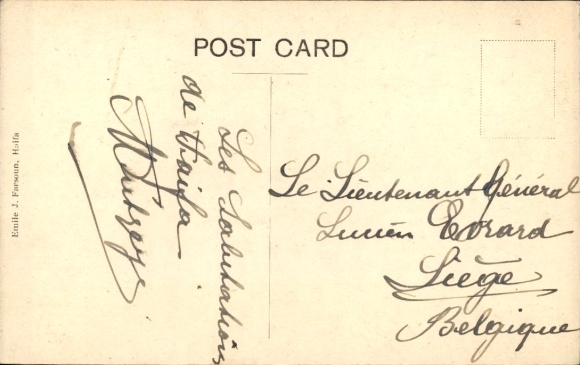 POST CARD
Les Salutations
de Haifa
Le Lieutenant Général
Lucien Evrard
Liège
Belgique
Emile J. Farsoun, Haifa